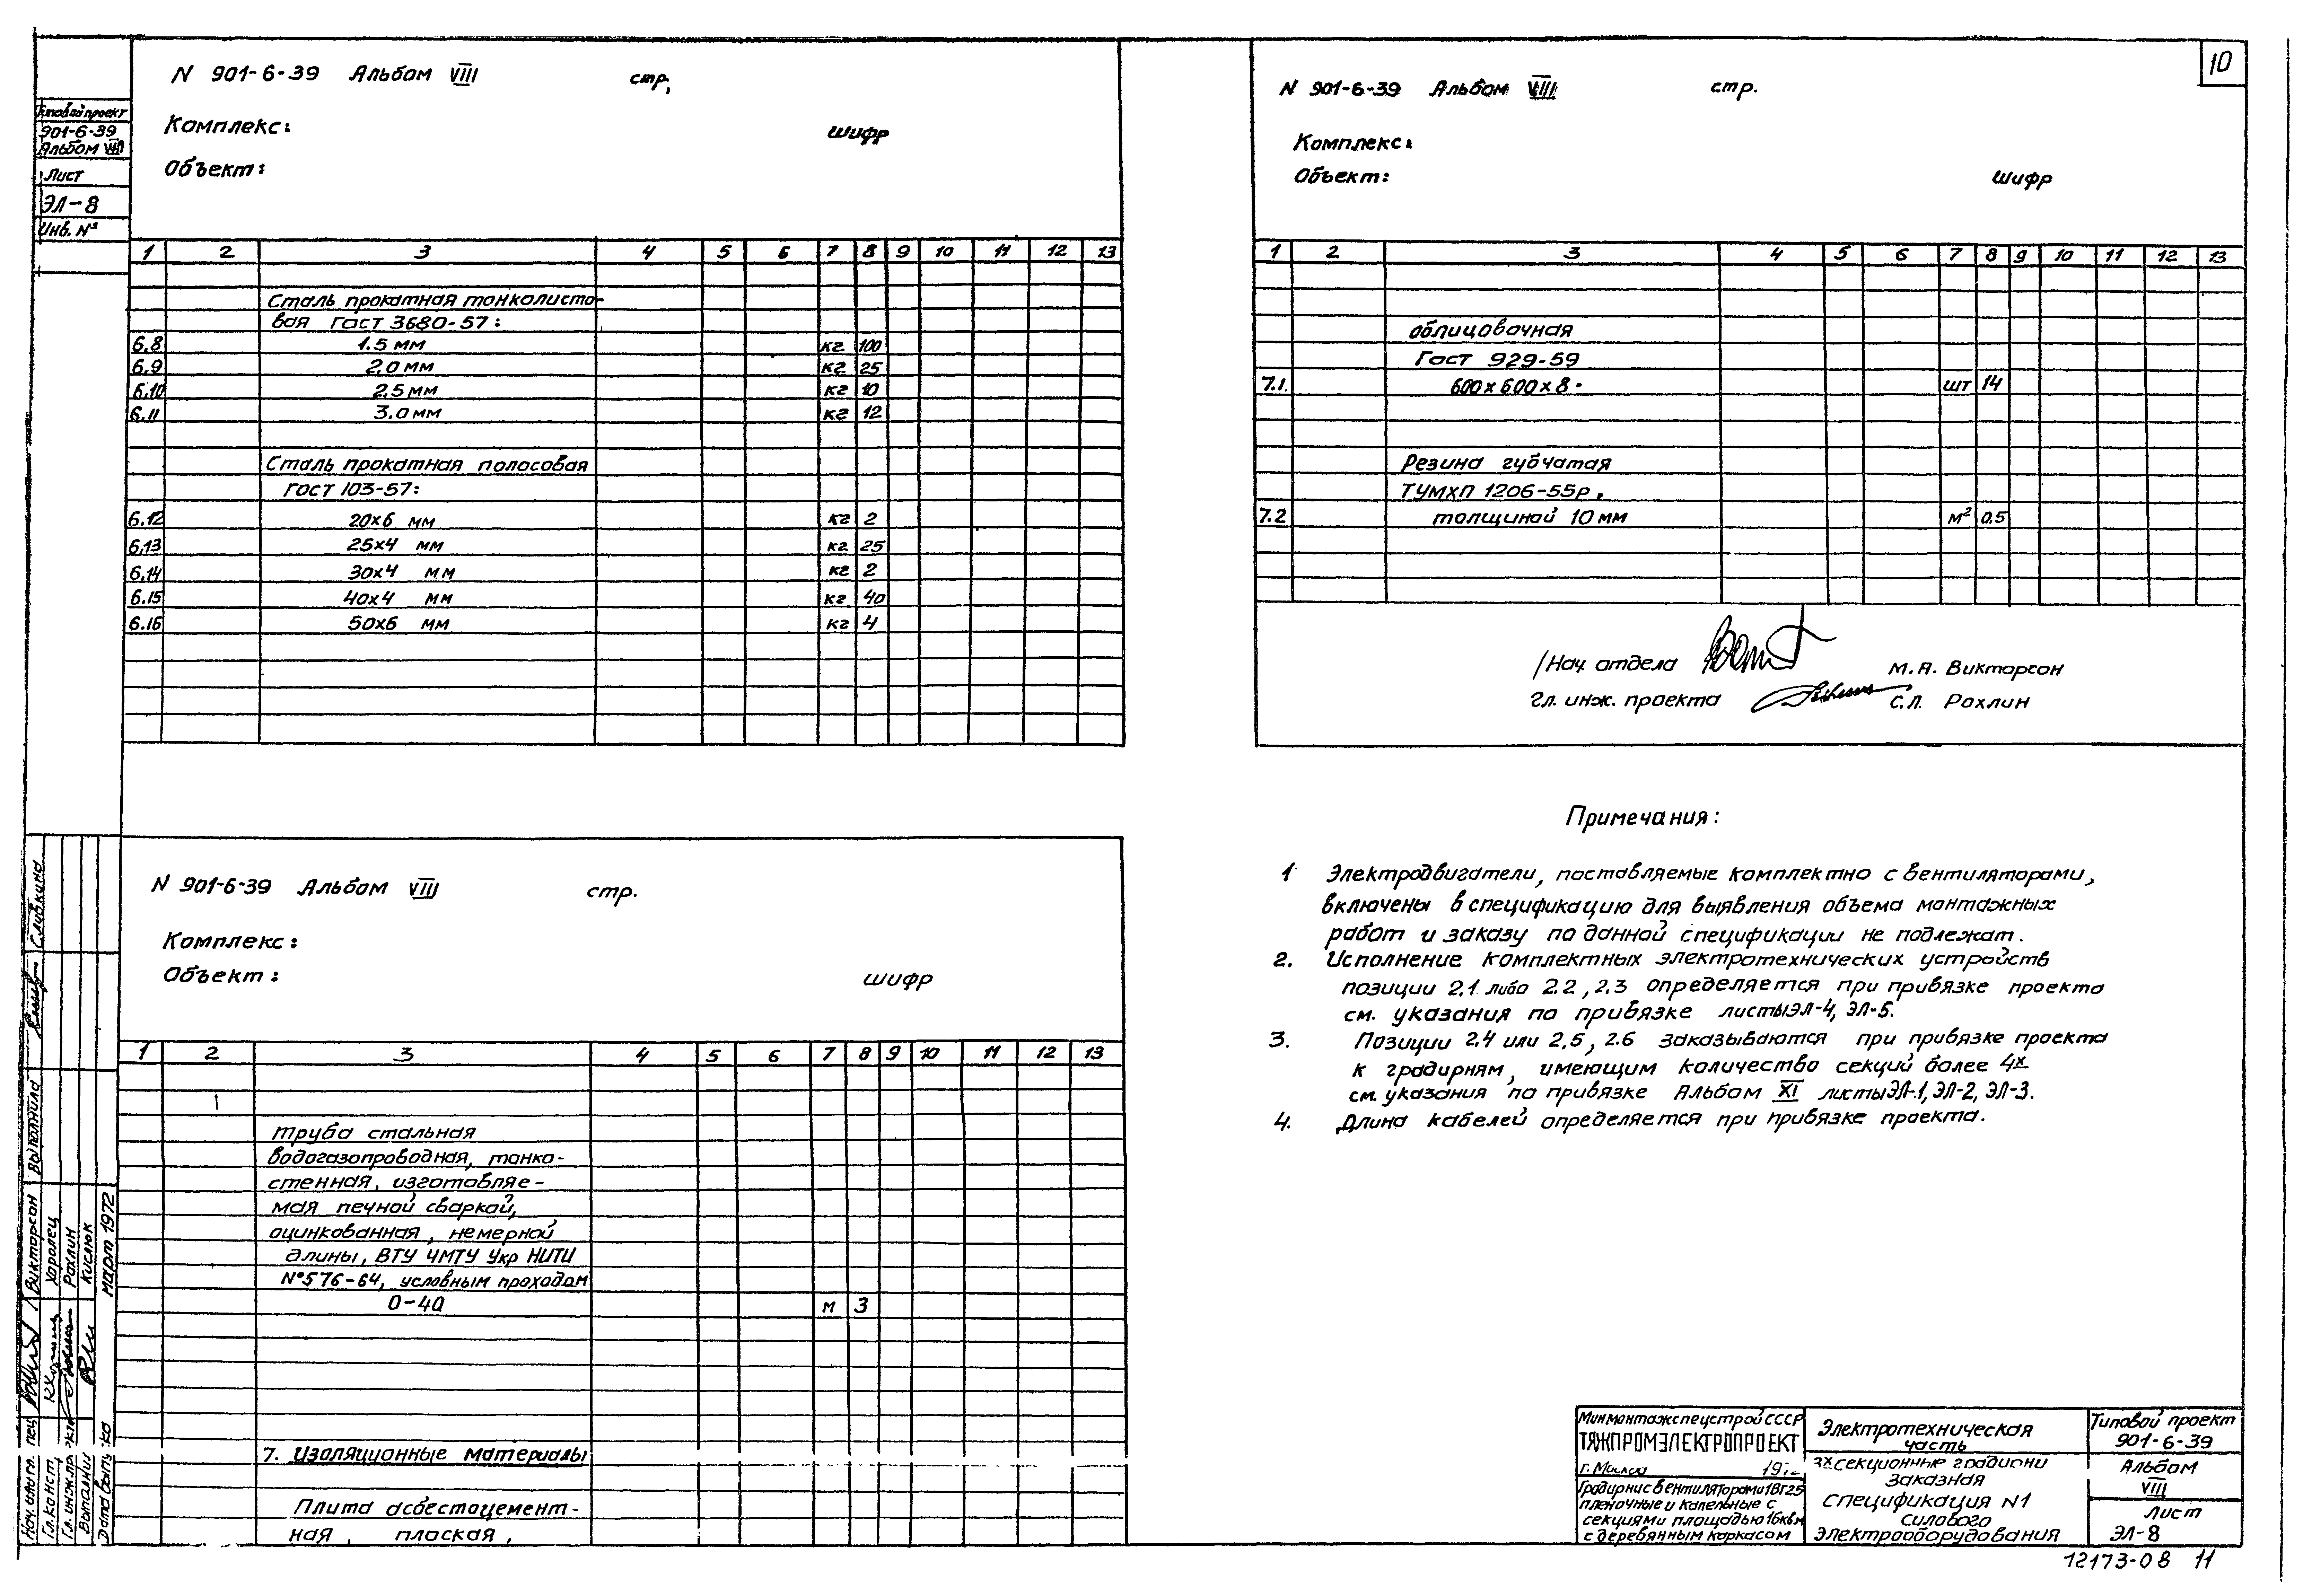 10
Типовой проект
901-6-39
Альбом VIII
Лист
ЭЛ-8
Инв. №
N 901-6-39 Альбом VIII стр.
Комплекс:
шифр
Объект:
1 2 3 4 5 6 7 8 9 10 11 12 13
Сталь прокатная тонколисто-
вая Гост 3680-57:
6.8 1.5 мм кг 100
6.9 2.0 мм кг 25
6.10 2.5 мм кг 10
6.11 3.0 мм кг 12
Сталь прокатная полосовая
Гост 103-57:
6.12 20х6 мм кг 2
6.13 25х4 мм кг 25
6.14 30х4 мм кг 2
6.15 40х4 мм кг 40
6.16 50х6 мм кг 4
N 901-6-39 Альбом VIII стр.
Комплекс:
Объект:
шифр
1 2 3 4 5 6 7 8 9 10 11 12 13
труба стальная
водогазопроводная, тонко-
стенная, изготовляе-
мая печной сваркой,
оцинкованная, немерной
длины, ВТУ ЧМТУ Укр НИТИ
№576-64, условным проходом
0-40 м 3
7. Изоляционные материалы
Плита асбестоцемент-
ная, плоская,
N 901-6-39 Альбом VIII стр.
Комплекс:
Объект:
шифр
1 2 3 4 5 6 7 8 9 10 11 12 13
облицовочная
Гост 929-59
7.1. 600х600х8. шт 14
Резина губчатая
ТУМХП 1206-55р,
7.2 толщиной 10 мм м² 0.5
Нач. отдела М.А. Викторсон
Гл. инж. проекта С.Л. Рохлин
Примечания:
1 Электродвигатели, поставляемые комплектно с вентиляторами,
включены в спецификацию для выявления объема монтажных
работ и заказу по данной спецификации не подлежат.
2. Исполнение комплектных электротехнических устройств
позиции 2.1 либо 2.2, 2.3 определяется при привязке проекта
см. указания по привязке листы ЭЛ-4, ЭЛ-5.
3. Позиции 2.4 или 2.5, 2.6 заказываются при привязке проекта
к градирням, имеющим количество секций более 4х
см. указания по привязке Альбом XI листы ЭЛ-1, ЭЛ-2, ЭЛ-3.
4. Длина кабелей определяется при привязке проекта.
Минмонтажспецстрой СССР
ТЯЖПРОМЭЛЕКТРОПРОЕКТ
г. Москва 1972
Градирни с вентиляторами 1ВГ25
пленочные и капельные с
секциями площадью 16кв.м
с деревянным каркасом
Электротехническая
часть
3х секционные градирни
Заказная
спецификация N1
силового
электрооборудования
Типовой проект
901-6-39
Альбом
VIII
Лист
ЭЛ-8
12173-08 11
Викторсон
Выполнила
Сливкина
Гл. конст. Хоролец
Гл. инж. пр. Рохлин
Кислюк
март 1972